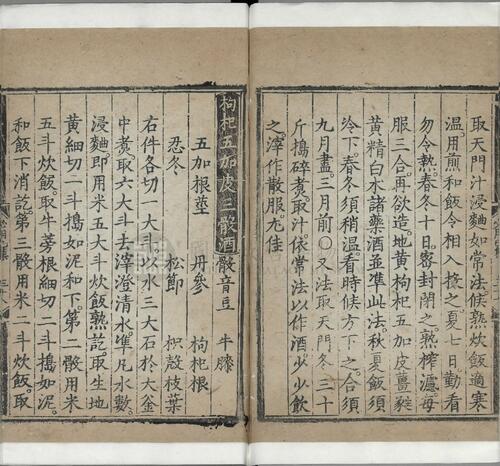 取天門汁浸麯如常法候熟炊飯適寒
溫用煎和飯令相入投之夏七日勤看
勿令熱春冬十日密封閉之熟榨漉每
服三合再欲造地黃枸杞五加皮薑
黃精白水諸藥酒並準此法秋夏飯須
冷下春冬須稍溫看時候方下之合須
九月盡三月前○又法取天門冬三十
斤搗碎煮取汁依常法以作酒少少飲
之滓作散服尤佳
枸杞五加皮三骰酒骰音豆
五加根莖 丹參 枸杞根 牛膝
忍冬 松節 枳殼枝葉
右件各切一大斗以水三大石於大釜
中煮取六大斗去滓澄清水準凡水數
浸麯即用米五大斗炊飯熟訖取生地
黃細切二斗搗如泥和下第二骰用米
五斗炊飯取牛蒡根細切二斗搗如泥
和飯下消訖第三骰用米二斗炊飯取